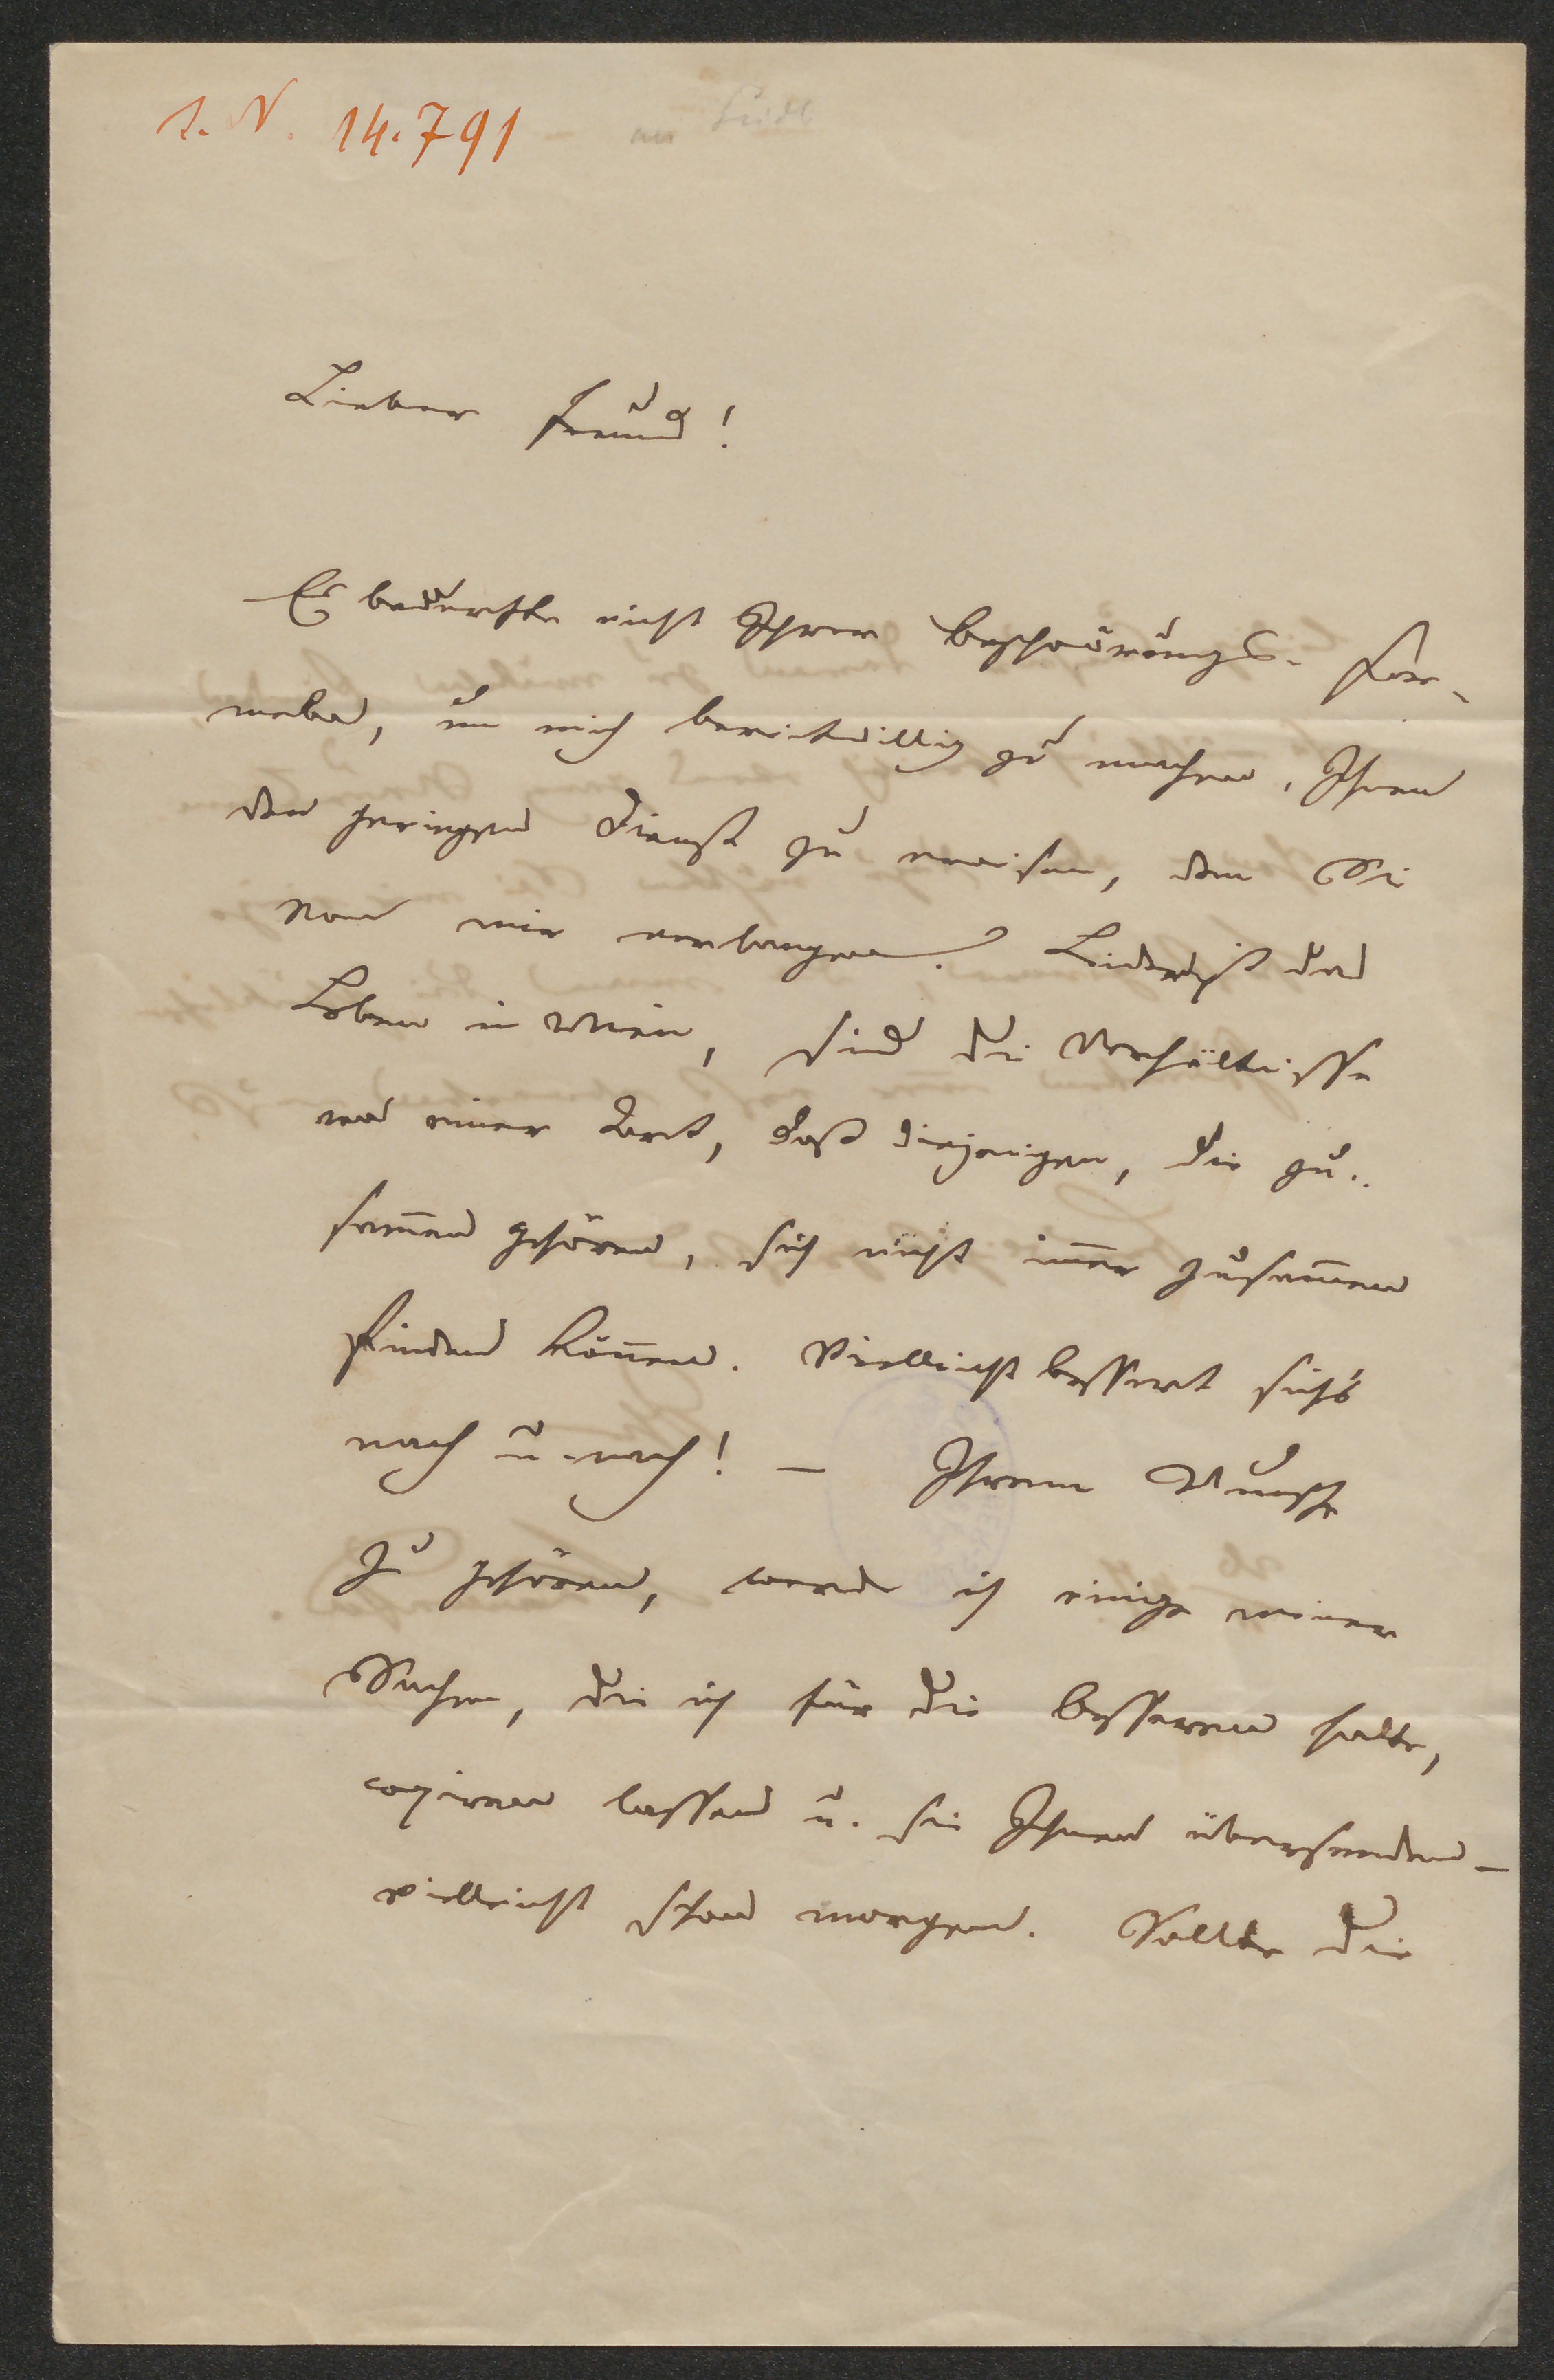 I. N. 14.791 - an Seidl
Lieber Freund!
Es bedurfte nicht Ihrer Beschwörungs- For-
meln, um mich bereitwillig zu machen, Ihnen
den geringen Dienst zu erweisen, den Sie
von mir verlangen. Leider ist das
Leben in Wien, sind die Verhältnisse
von einer Art, daß diejenigen, die zu-
sam̄en gehören, sich nicht im̄er zusam̄en
finden kön̄en. Vielleicht bessert sich's
nach u. nach! — Ihrem Wunsche
zu gehören, werde ich einige meiner
Sachen, die ich für die besseren halte,
copiren lassen u. sie Ihnen übersenden —
vielleicht schon morgen. Sollte die